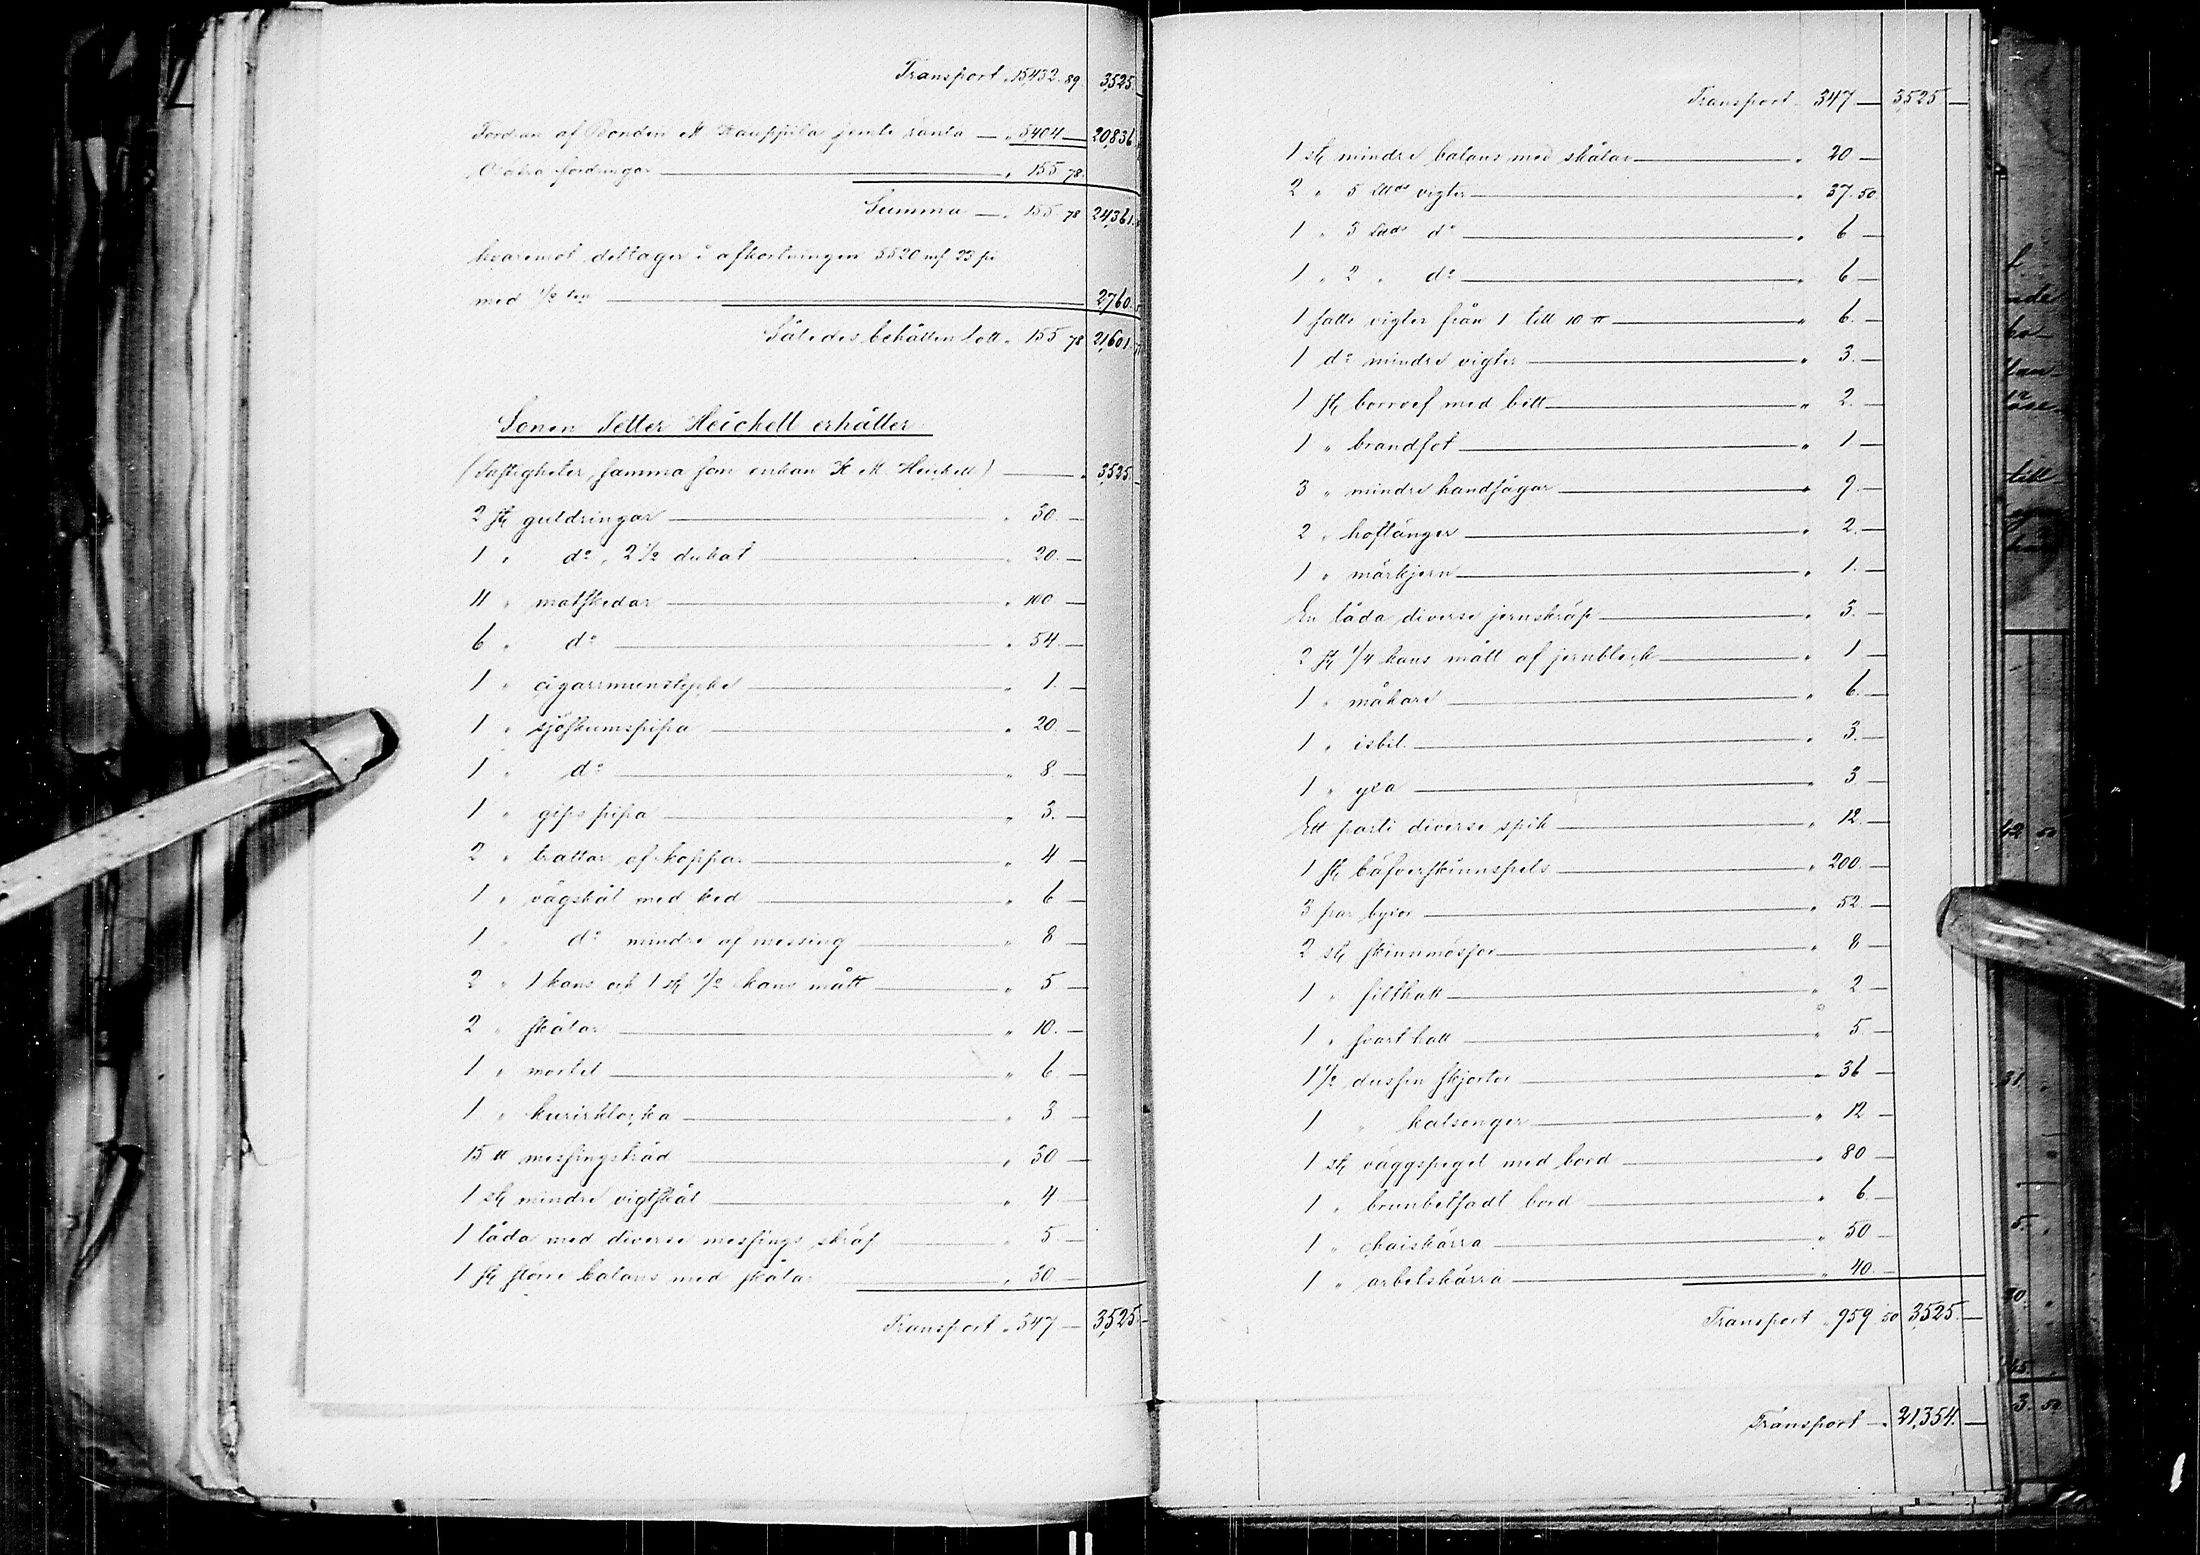 Transport „ 15,432. 89. 3,525. —
Fordran af Bonden M Kauppila jemte ränta — „ 5,404 — 20,836.
Osäkra fordringar — „ 155 78.
Summa — „ 155 78 24,361.
hvaremot deltager i afkortningen 5520 mf 23 pi
med 1/2 ten — 2,760.
Således behållen lott „ 155 78 21,601.
Sonen Petter Heickell erhåller
(Fastigheter, samma som enkan K M Heickell) — „ 3,525. —
2 st guldringar — „ 30. —
1 „ do, 2 1/2 dukat — „ 20. —
11 „ matskedar — „ 100 —
6 „ do — „ 54. —
1 „ cigarrmunstycke — „ 1. —
1 „ sjöskumspipa — „ 20. —
1 „ do — „ 8. —
1 „ gips pipa — „ 3. —
2 „ trattar af koppar — „ 4 —
1 „ vågskål med ked — „ 6 —
1 „ do mindre af messing — „ 8 —
2 „ 1 kans och 1 st 1/2 kans mått — „ 5 —
2 „ skålar — „ 10. —
1 „ mortel — „ 6 —
1 „ kurirklocka — „ 3 —
15 ℔ messingstråd — „ 30 —
1 st mindre vigtskål — „ 4 —
1 låda med diverse messings skräp — „ 5. —
1 st större balans med skålar — „ 30 —
Transport „ 347 — 3,525. —
Transport „ 347 — 3,525 —
1 st mindre balans med skålar — „ 20 —
2 „ 5 vigter — „ 37. 50.
1 „ 3 do — „ 6 —
1 „ 2 „ do — „ 6 —
1 satts vigter från 1 till 10 ℔ — „ 6. —
1 do mindre vigter — „ 3. —
1 st borrsef med bett — „ 2. —
1 „ brandfot — „ 1 —
3 „ mindre handsågar — „ 9. —
2 „ hoftänger — „ 2. —
1 „ märkjern — „ 1. —
En låda diverse jernskräp — „ 3. —
2 st 1/4 kans mått af jernbleck — „ 1 —
1 „ måkare — „ 6. —
1 „ isbil — „ 3. —
1 „ yxa — „ 3 —
Ett parti diverse spik — „ 12. —
1 st bäfverskinnspels — „ 200. —
3 par byxor — „ 52. —
2 st skinnmössor — „ 8 —
1 „ filthatt — „ 2 —
1 „ svart hatt — „ 5. —
1 1/2 dussin skjortor — „ 36 —
1 „ kalsonger — „ 12 —
1 st väggspegel med bord — „ 80 —
1 „ brunbetsadt bord — „ 6. —
1 „ chaiskärra — „ 50 —
1 „ arbetskärra — „ 40. —
Transport „ 959 50 3,525. —
Transport — „ 21,354. —